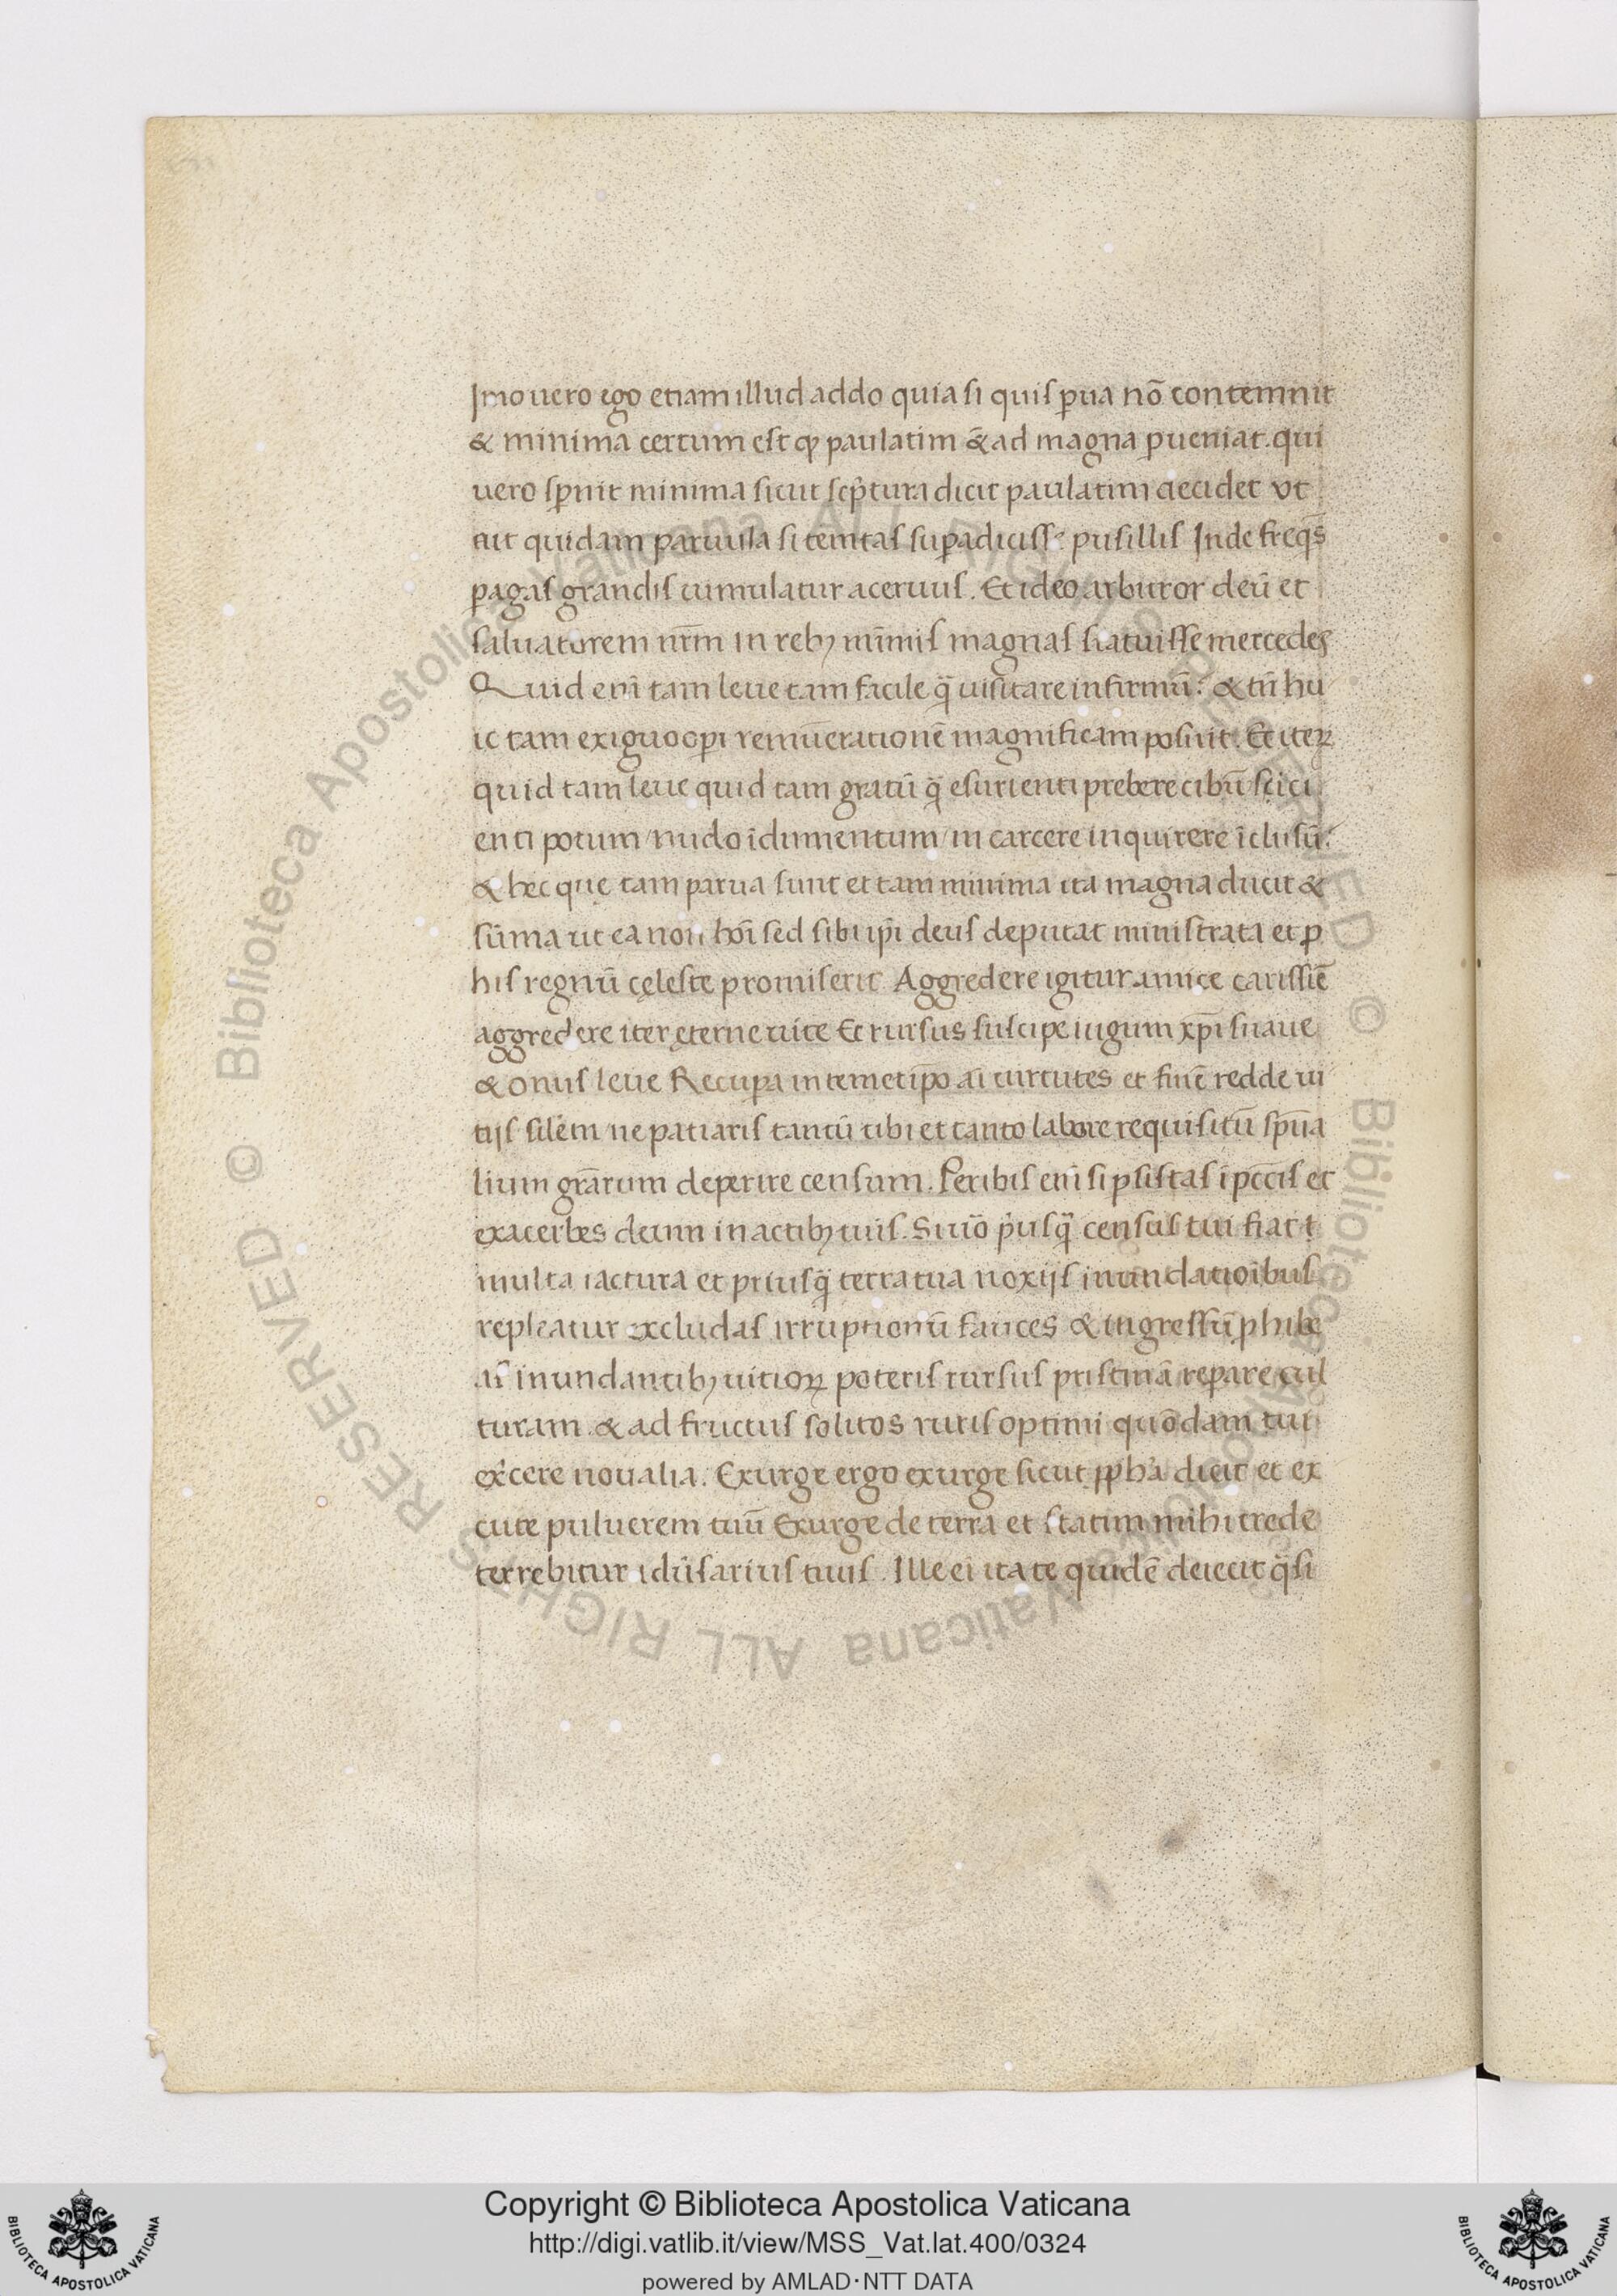 Imo uero ego etiam illud addo quia si quis ꝑua nō contemnit
& minima certum est ꝙ paulatim & ad magna ꝑueniat. qui
uero sꝑnit minima sicut scp̄tura dicit paulatim decidet vt
ait quidam paruula si temtas suꝑadicisse pusillis Inde freqn̄s
ꝑagas grandis cumulatur aceruus. Et ideo arbitror deū et
saluatorem nr̄m in rebꝫ mīmis magnas statuisse mercedes
Quid enī tam leue tam facile q̄ uisitare infirmū? & tn̄ hu
ic tam exiguo oꝑi remūerationē magnificam posuit. Et iteꝝ
quid tam leue quid tam gratū q̄ esurienti prebere cibū / scici
enti potum / nudo īdumentum / in carcere inquirere īclusū?
& hec que tam parua sunt et tam minima ita magna ducit &
sūma ut ea non hoī sed sibi ip̄i deus deputat ministrata et ꝓ
his regnū cęleste promiserit Aggredere igitur amice carissīē
aggredere iter ęterne uite Et rursus suscipe iugum xp̄i suaue
& onus leue Recuꝑa in temetip̄o aī uirtutes et finē redde ui
tijs silēm / ne patiaris tantū tibi et tanto labore requisitū sp̄ua
lium grārum deperire censum. Peribis enī si ꝑsistas ī pccīs et
exacerbes deum in actibꝫ tuis. Si uō pusq̄ census tui fiat
multa iactura et priusq̄ terra tua noxijs inundatioībus
repleatur excludas irruptionū fauces & ingressū ꝓhibe
as inundantibꝫ uitioꝝ poteris rursus pristinā reꝑare cul
turam. & ad fructus solitos ruris optimi quōdam tui
excere noualia. Exurge ergo exurge sicut ꝓpha dicit et ex
cute puluerem tuū Exurge de terra et statim mihi crede
terrebitur adūsarius tuus. Ille ei ita te quidē deiecit q̄si
Copyright © Biblioteca Apostolica Vaticana
http://digi.vatlib.it/view/MSS_Vat.lat.400/0324
powered by AMLAD·NTT DATA